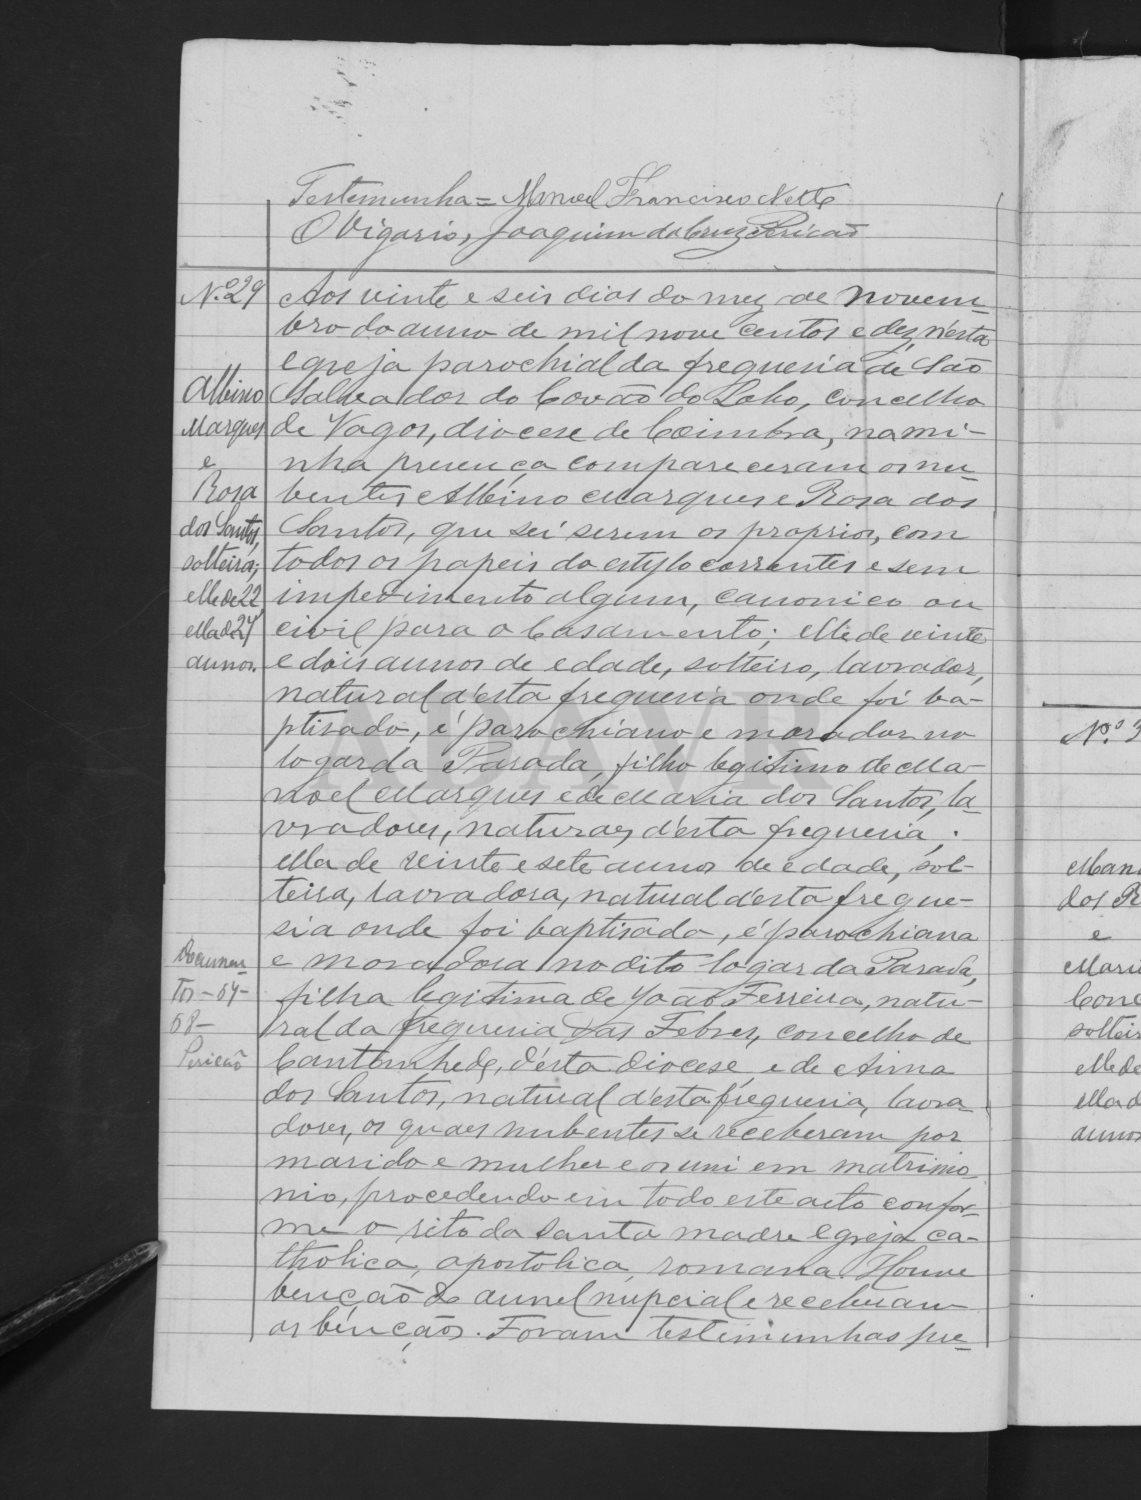 Testemunha = Manuel Francisco Netto
O Vigario, Joaquim da Cruz Pericão
N.º 29
Albino
Marques
e
Rosa
dos Santos,
solteiros;
elle de 22
ella de 27
annos.
Documen-
tos - 67 -
68 -
Pericão
Aos vinte e seis dias do mez de Novem-
bro do anno de mil nove centos e dez, n'esta
egreja parochial da freguesia de São
Salvador do Covão do Lobo, concelho
de Vagos, diocese de Coimbra, na mi-
nha presença compareceram os nu-
bentes Albino Marques e Rosa dos
Santos, que sei serem os proprios, com
todos os papeis do estylo correntes e sem
impedimento algum, canonico ou
civil para o casamento; elle de vinte
e dois annos de edade, solteiro, lavrador,
natural d'esta freguesia onde foi ba-
ptisado, é parochiano e morador no
logar da Parada, filho legitimo de Ma-
noel Marques e de Maria dos Santos, la-
vradores, naturaes d'esta freguesia;
ella de vinte e sete annos de edade, sol-
teira, lavradora, natural d'esta fregue-
sia onde foi baptisada, é parochiana
e moradora no dito logar da Parada,
filha legitima de João Ferreira, natu-
ral da freguesia das Febres, concelho de
Cantanhede, d'esta diocese, e de Anna
dos Santos, natural d'esta freguesia, lavra-
dores, os quaes nubentes se receberam por
marido e mulher e os uni em matrimo-
nio, procedendo em todo este acto confor-
me o rito da Santa madre Egreja ca-
tholica, apostolica, romana. Houve
benção do annel nupcial e receberam
as bênçãos. Foram testimunhas pre-
N.º 3
Man
dos R
e
Mari
Conc
solteir
elle de
ella d
annos
ADAVR